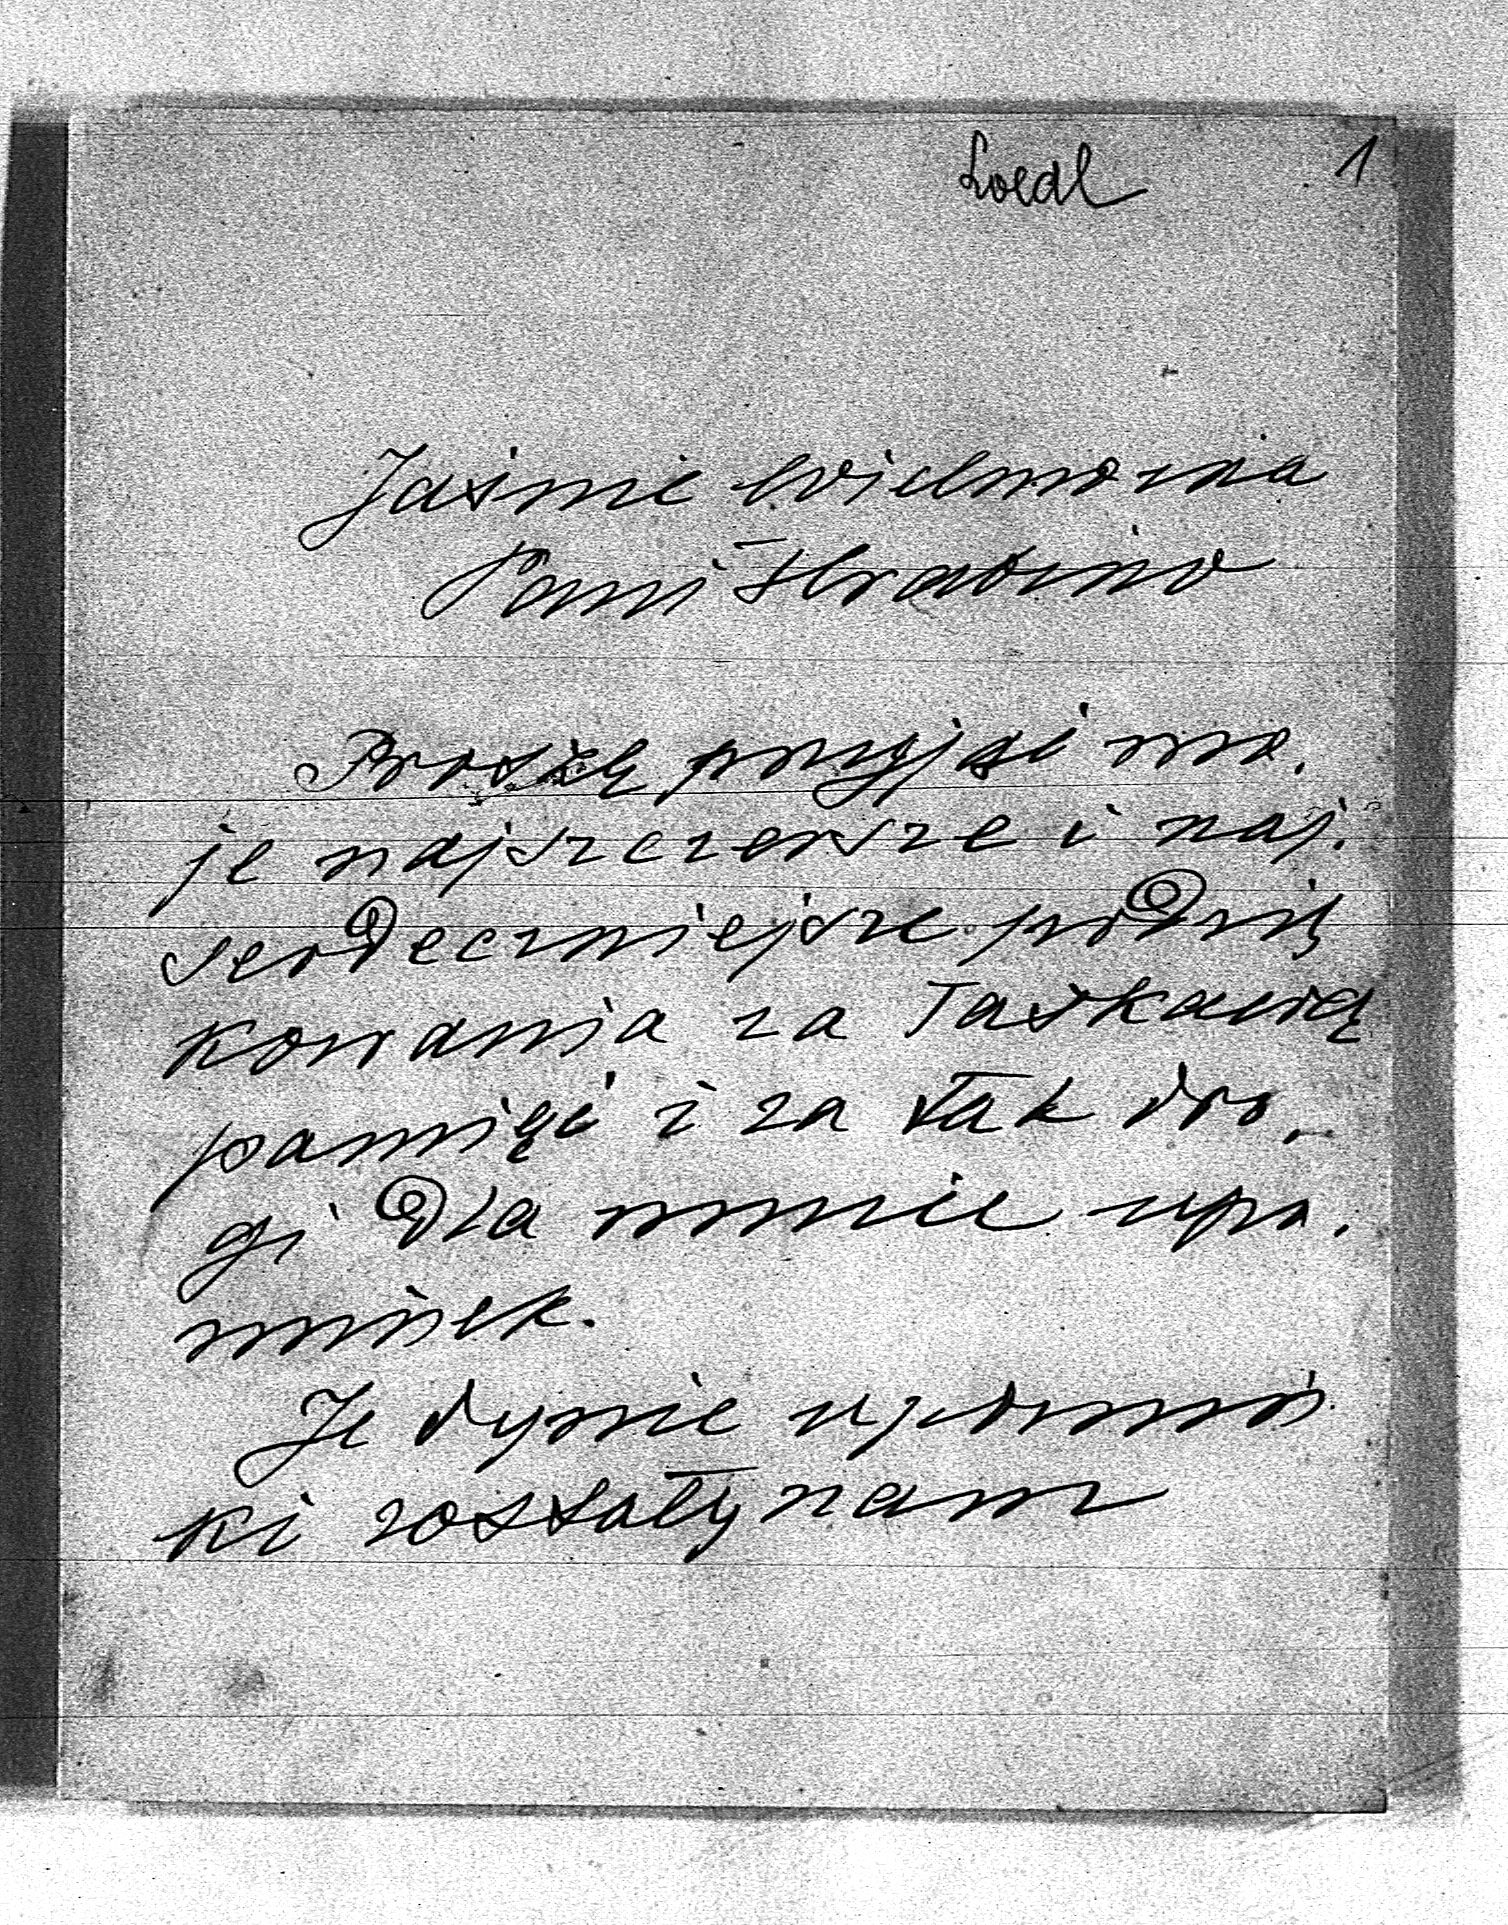 Loedl 1
Jaśnie Wielmożna
Pani Hrabino
Proszę przyjąć mo.
je najszczersze i naj.
serdeczniejsze podzię
kowania za łaskawą
pamięć i za tak dro_
gi dla mnie upo.
minek.
Jedynie upomin
ki zostały nam